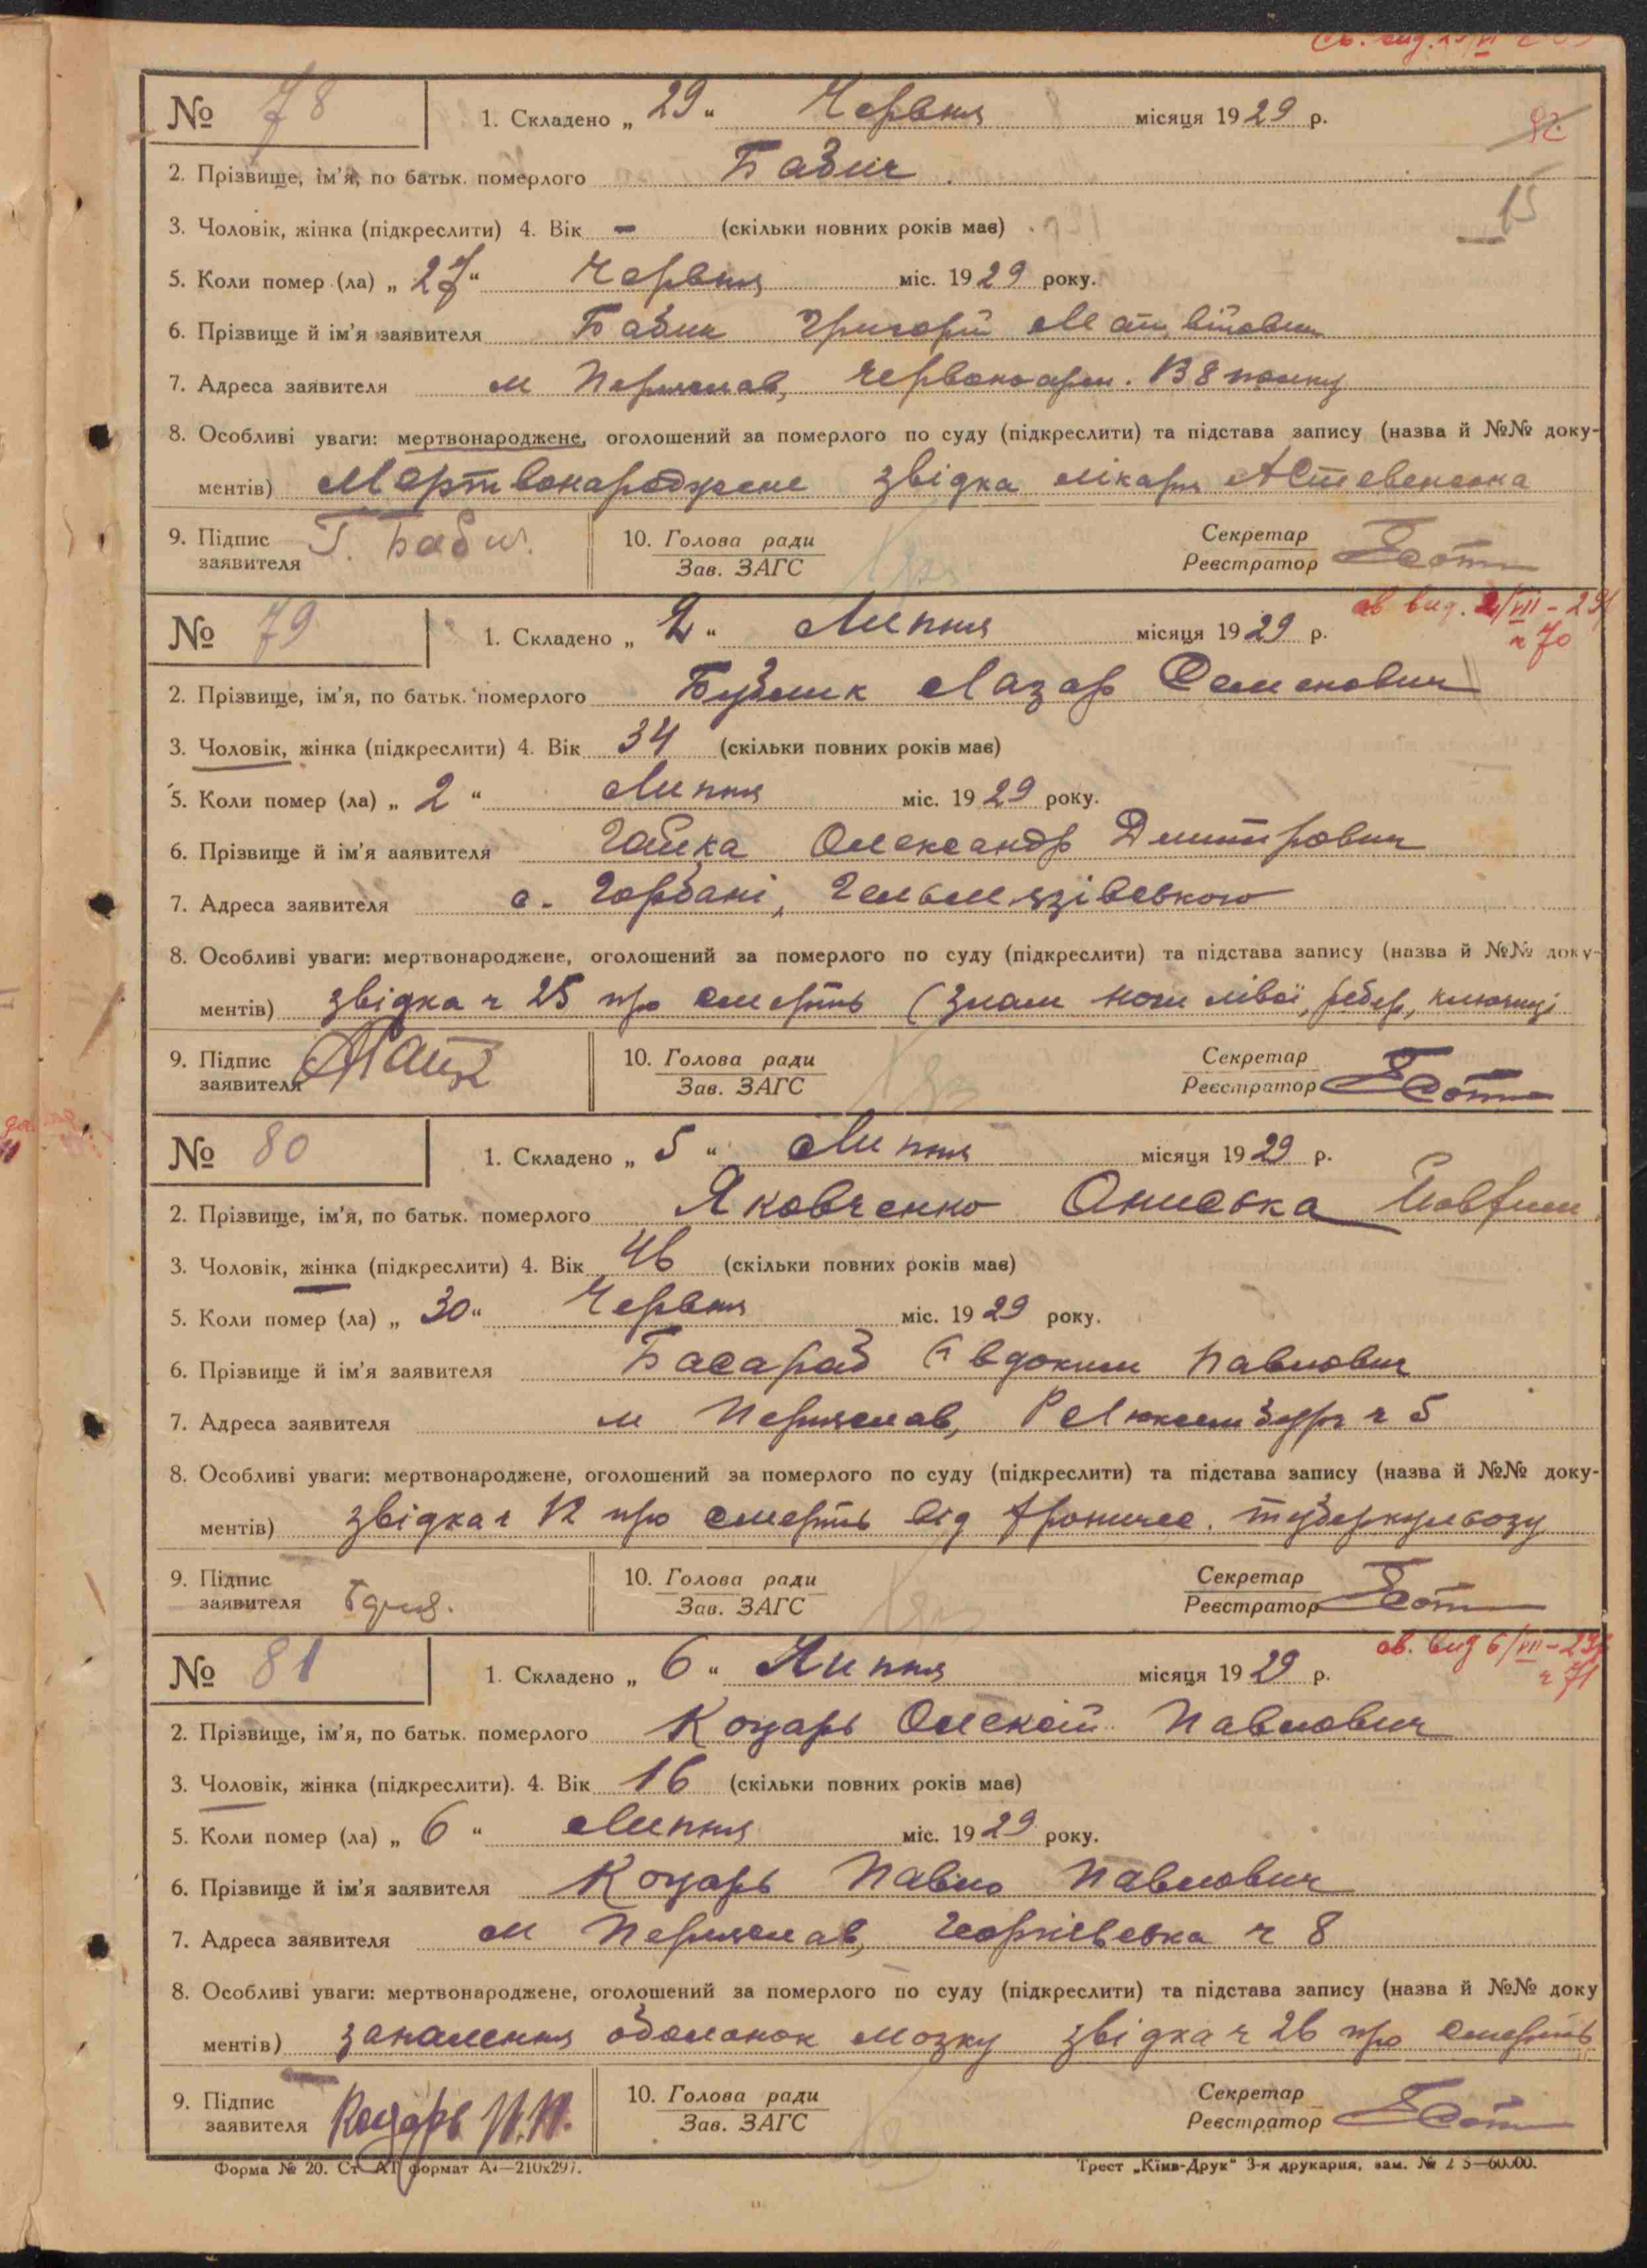 № 78 1. Складено „ 29 “ Червня місяця 1929 р.
2. Прізвище, ім'я, по батьк. померлого Бабич
15
3. Чоловік, жінка (підкреслити) 4. Вік — (скільки повних років має)
5. Коли помер (ла) „ 27 “ Червня міс. 1929 року.
6. Прізвище й ім'я заявителя Бабич Григорій Матвійович
7. Адреса заявителя м Переяслав, Червоноарм.
8. Особливі уваги: мертвонароджене, оголошений за померлого по суду (підкреслити) та підстава запису (назва й №№ доку-
ментів) Мертвонароджене звідка лікаря
9. Підпис заявителя Г. Бабич. 10. Голова ради Секретар
Зав. ЗАГС Реєстратор
ов. вид. 2/VII – 29
ч 70
№ 79 1. Складено „ 2 “ Липня місяця 1929 р.
2. Прізвище, ім'я, по батьк. померлого Бублик Лазар Семенович
3. Чоловік, жінка (підкреслити) 4. Вік 34 (скільки повних років має)
5. Коли помер (ла) „ 2 “ Липня міс. 1929 року.
6. Прізвище й ім'я заявителя Гайка Олександр Дмитрович
7. Адреса заявителя с. Горбані, Гельмязівського
8. Особливі уваги: мертвонароджене, оголошений за померлого по суду (підкреслити) та підстава запису (назва й №№ доку-
ментів) звідка ч 25 про смерть (злам ноги лівої, ребер, ключиці
9. Підпис заявителя 10. Голова ради Секретар
Зав. ЗАГС Реєстратор
№ 80 1. Складено „ 5 “ Липня місяця 1929 р.
2. Прізвище, ім'я, по батьк. померлого Яковченко Ониська
3. Чоловік, жінка (підкреслити) 4. Вік 46 (скільки повних років має)
5. Коли помер (ла) „ 30 “ Червня міс. 1929 року.
6. Прізвище й ім'я заявителя Басараб Євдоким Павлович
7. Адреса заявителя м Переяслав, Р Люксембург ч 5
8. Особливі уваги: мертвонароджене, оголошений за померлого по суду (підкреслити) та підстава запису (назва й №№ доку-
ментів) звідка ч 12 про смерть від хроничес. туберкульозу
9. Підпис заявителя 10. Голова ради Секретар
Зав. ЗАГС Реєстратор
ов. вид 6/VII – 29
ч 71
№ 81 1. Складено „ 6 “ Липня місяця 1929 р.
2. Прізвище, ім'я, по батьк. померлого Коцарь Олексій Павлович
3. Чоловік, жінка (підкреслити). 4. Вік 16 (скільки повних років має)
5. Коли помер (ла) „ 6 “ Липня міс. 1929 року.
6. Прізвище й ім'я заявителя Коцарь Павло Павлович
7. Адреса заявителя м Переяслав, Георгієвська ч 8
8. Особливі уваги: мертвонароджене, оголошений за померлого по суду (підкреслити) та підстава запису (назва й №№ доку
ментів) запалення оболонок мозку звідка ч 26 про смерть
9. Підпис заявителя Коцарь П.П. 10. Голова ради Секретар
Зав. ЗАГС Реєстратор
Форма № 20. Ст. А1 формат А4—210х297. Трест „Київ-Друк“ 3-я друкарня, зам. №